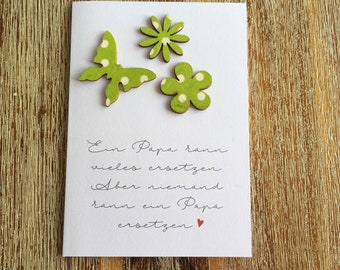 Ein Papa kann
vieles ersetzen.
Aber niemand
kann ein Papa
ersetzen